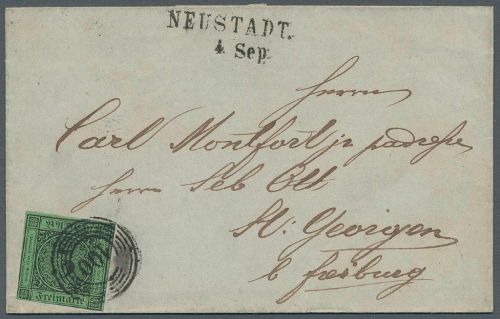 NEUSTADT.
4 Sep.
Herrn
Carl Montfort jr
Herrn Seb Ott
St: Georgen
b freiburg
Freimarke